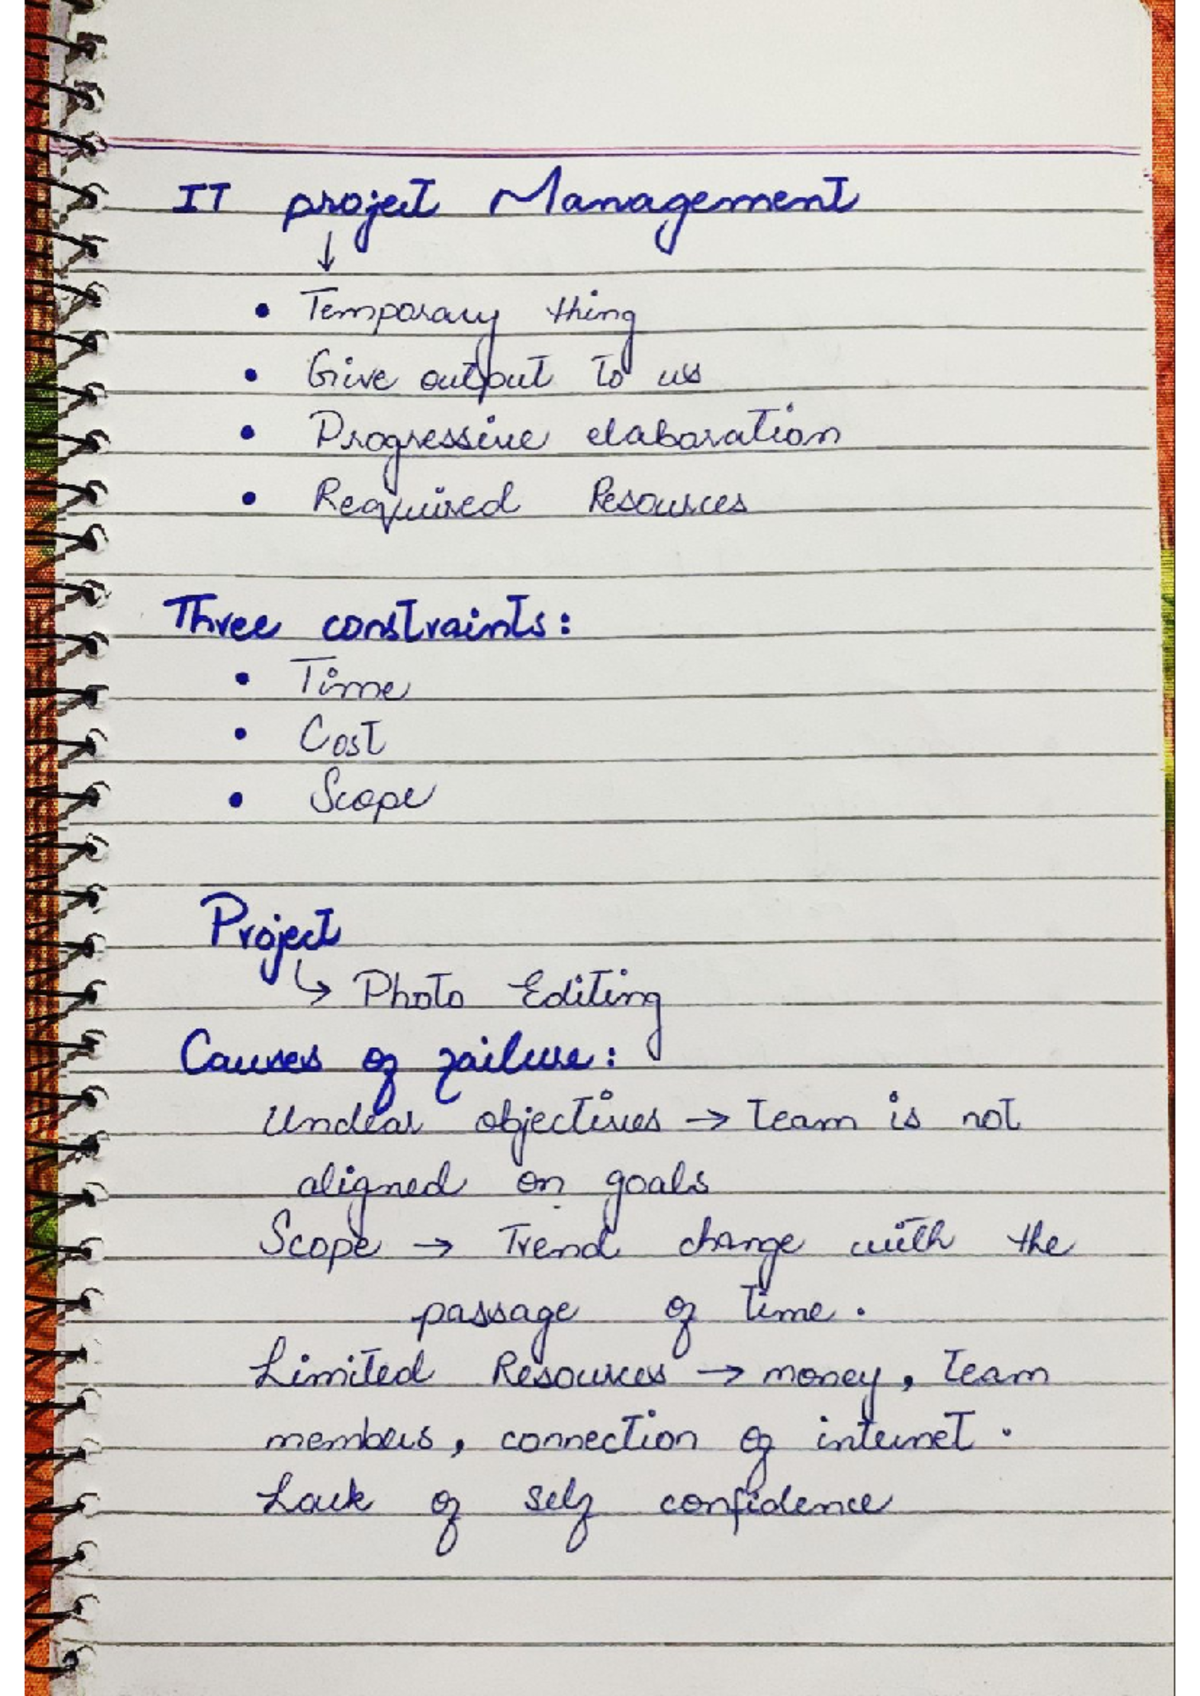 IT project Management
↓
• Temporary thing
• Give output to us
• Progressive elaboration
• Required Resources
Three constraints:
• Time
• Cost
• Scope
Project
↳ Photo Editing
Causes of failure:
Unclear objectives → team is not
aligned on goals
Scope → Trend change with the
passage of time.
Limited Resources → money, team
members, connection of internet.
Lack of self confidence